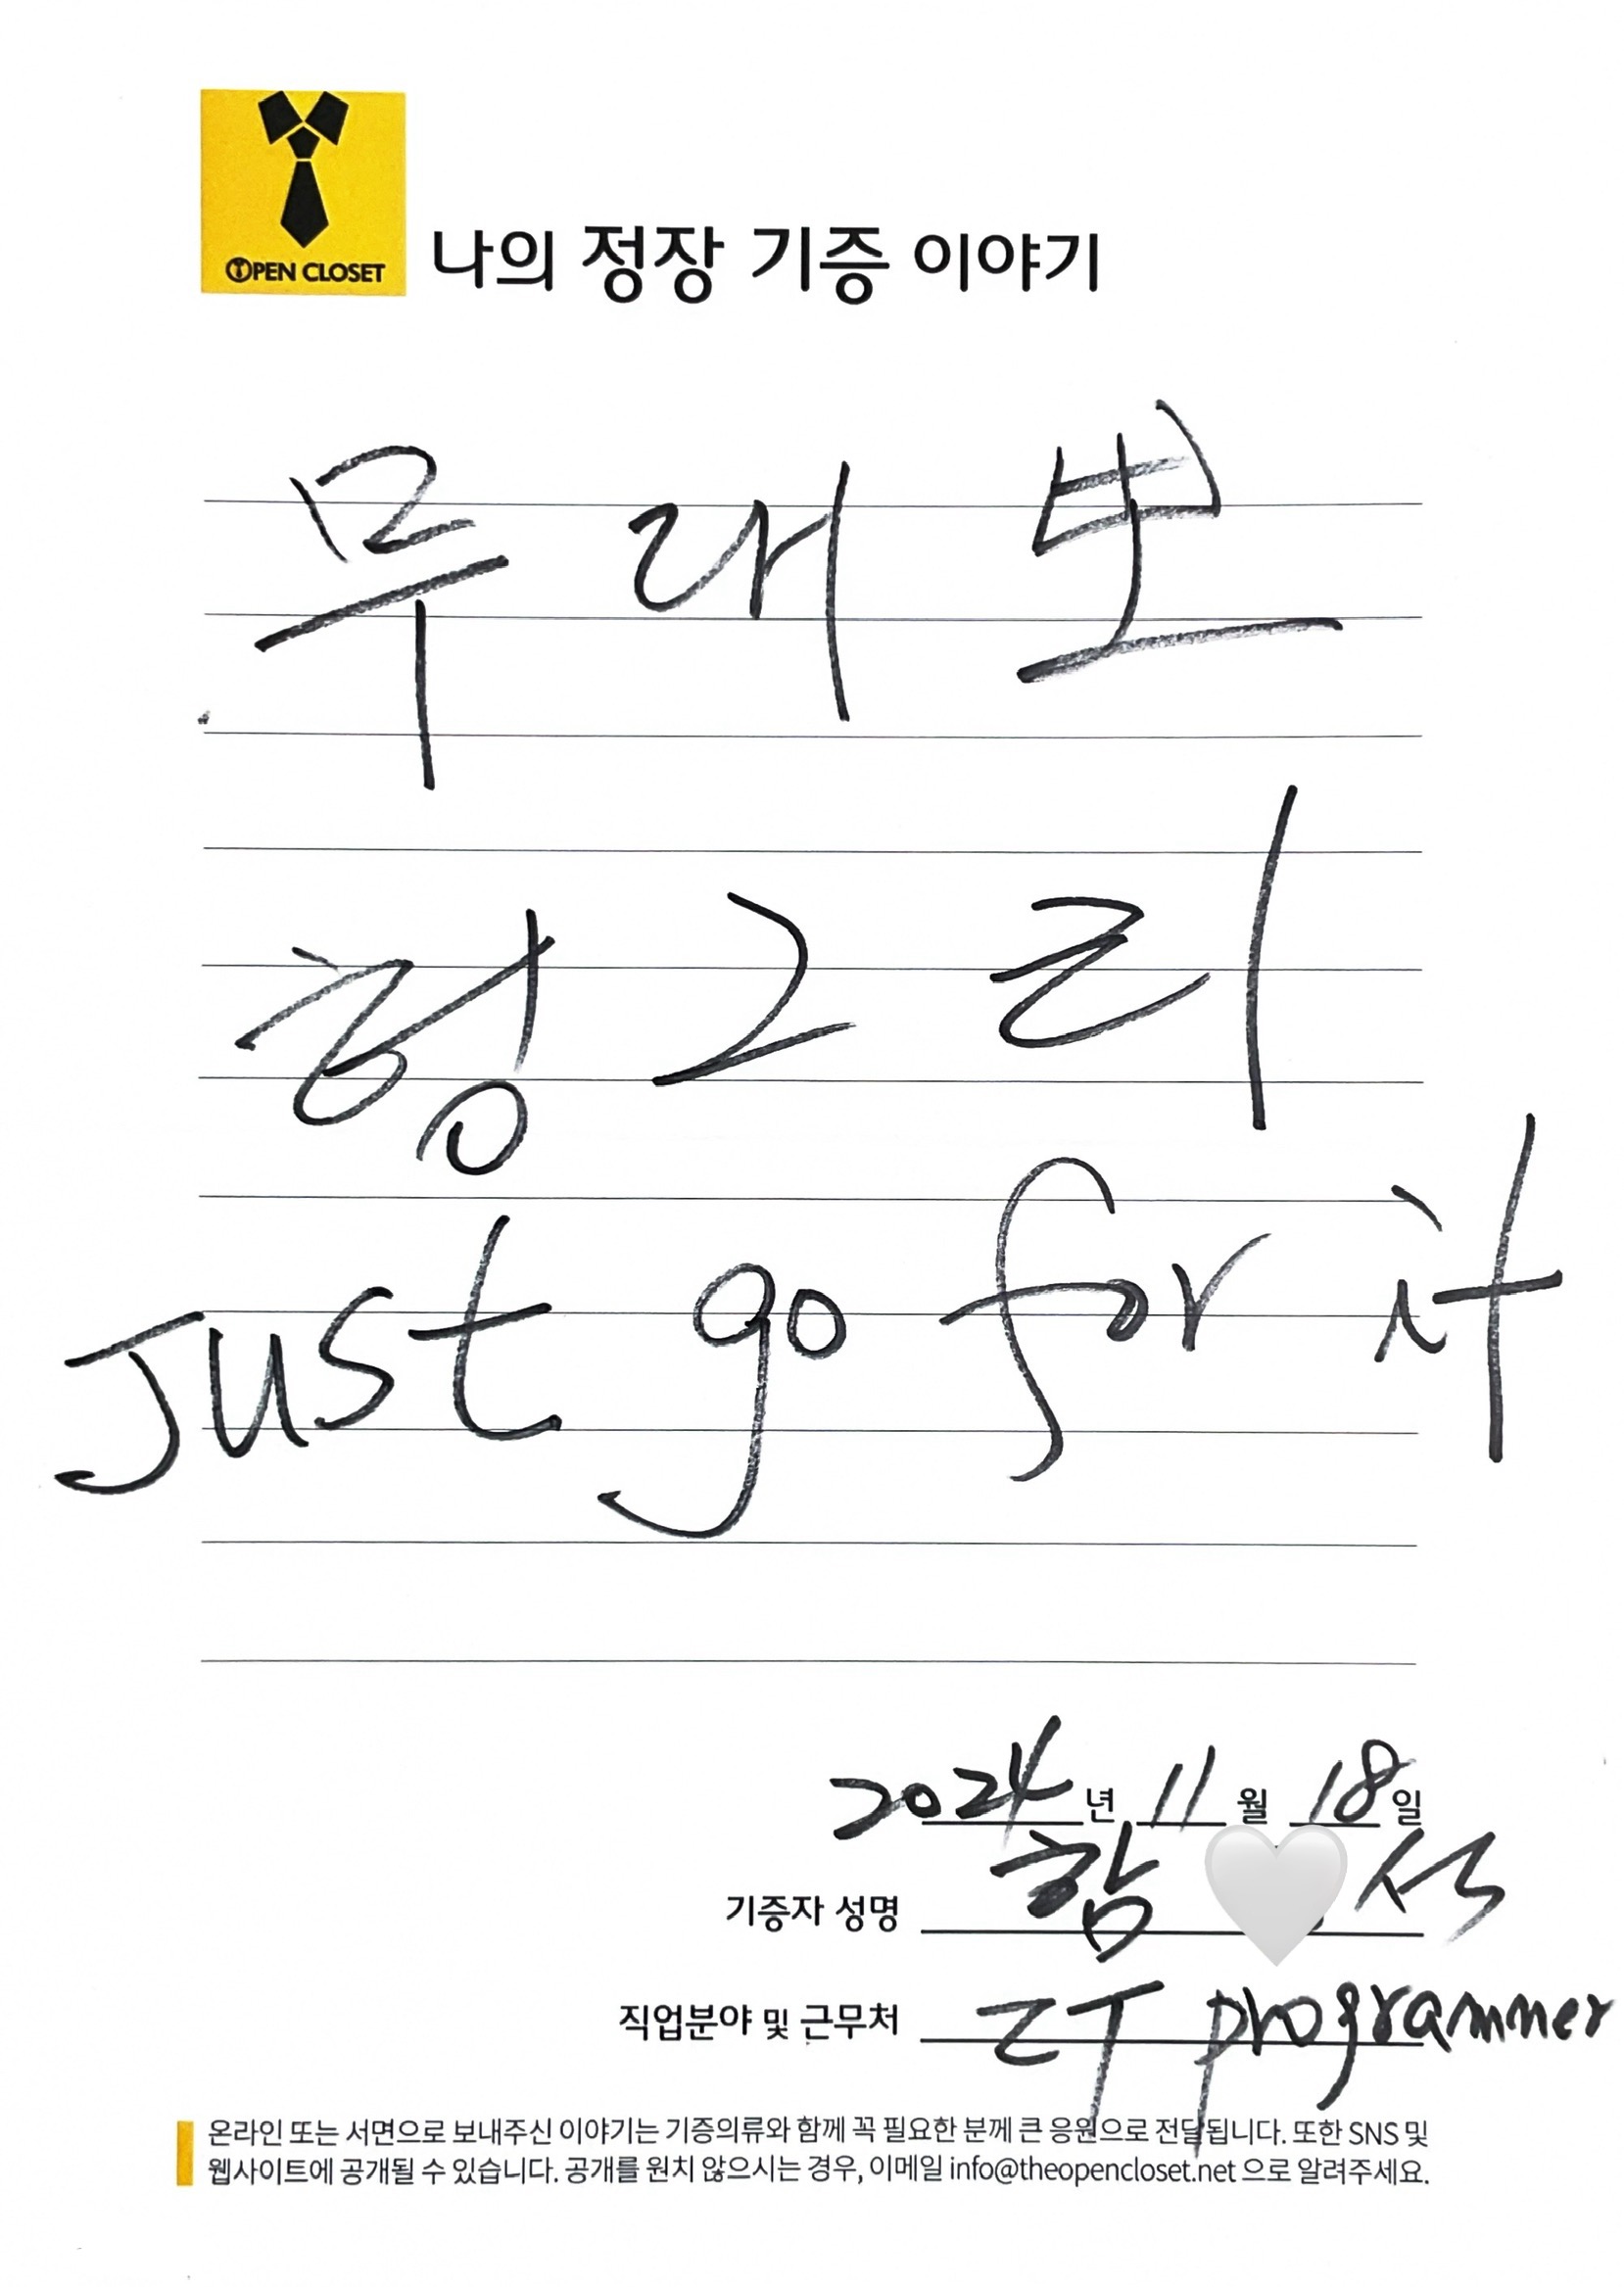 OPEN CLOSET
나의 정장 기증 이야기
무대뽀
헝그리
Just go for it
2024년 11월 18일
기증자 성명 함 석
직업분야 및 근무처 IT programmer
온라인 또는 서면으로 보내주신 이야기는 기증의류와 함께 꼭 필요한 분께 큰 응원으로 전달됩니다. 또한 SNS 및
웹사이트에 공개될 수 있습니다. 공개를 원치 않으시는 경우, 이메일 info@theopencloset.net 으로 알려주세요.